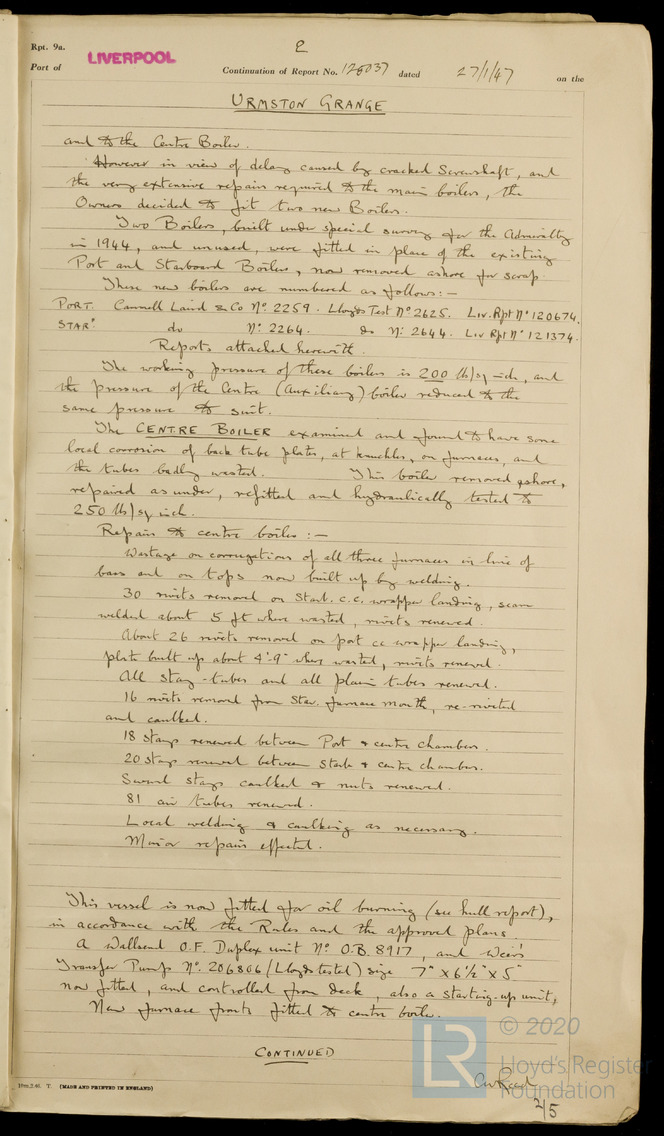 Rpt. 9a.
2
Port of LIVERPOOL
Continuation of Report No. 126037 dated 27/1/47 on the
URMSTON GRANGE
and to the Centre Boiler.
However in view of delay caused by cracked Screwshaft, and
the very extensive repairs required to the main boilers, the
Owners decided to fit two new Boilers.
Two Boilers, built under special survey for the Admiralty
in 1944, and unused, were fitted in place of the existing
Port and Starboard Boilers, now removed ashore for scrap.
These new boilers are numbered as follows:-
PORT. Cammell Laird & Co No. 2259. Lloyds Test No 2625. Liv. Rpt No 120674.
STARD do No. 2264. do No. 2644. Liv Rpt No 121374.
Reports attached herewith.
The working pressure of these boilers is 200 lb/sq inch, and
the pressure of the Centre (Auxiliary) boiler reduced to the
same pressure to suit.
The CENTRE BOILER examined and found to have some
local corrosion of back tube plates, at knuckles, on furnaces, and
the tubes badly wasted. This boiler removed ashore,
repaired as under, refitted and hydraulically tested to
250 lb/sq inch.
Repairs to centre boiler:-
Wastage on corrugations of all three furnaces in line of
bars and on tops now built up by welding.
30 rivets removed on Starb. c.c. wrapper landing, seam
welded about 5 ft where wasted, rivets renewed.
About 26 rivets removed on port cc wrapper landing,
plate built up about 4'-9" where wasted, rivets renewed.
All stay-tubes and all plain tubes renewed.
16 rivets removed from Star. furnace mouth, re-riveted
and caulked.
18 stays renewed between Port & centre chambers.
20 stays renewed between Starb & centre chambers.
stays caulked & nuts renewed.
81 air tubes renewed.
Local welding & caulking as necessary.
Minor repairs effected.
This vessel is now fitted for oil burning (see hull report),
in accordance with the Rules and the approved plans
A Wallsend O.F. Duplex unit No. O.B. 8917, and Weir's
Transfer Pump No. 206806 (Lloyds tested) size 7" x 6½" x 5"
now fitted, and controlled from deck, also a starting-up unit,
New furnace fronts fitted to centre boiler.
CONTINUED
2/5
10m.2.46. T. (MADE AND PRINTED IN ENGLAND)
LR
© 2020
Lloyd's Register
Foundation